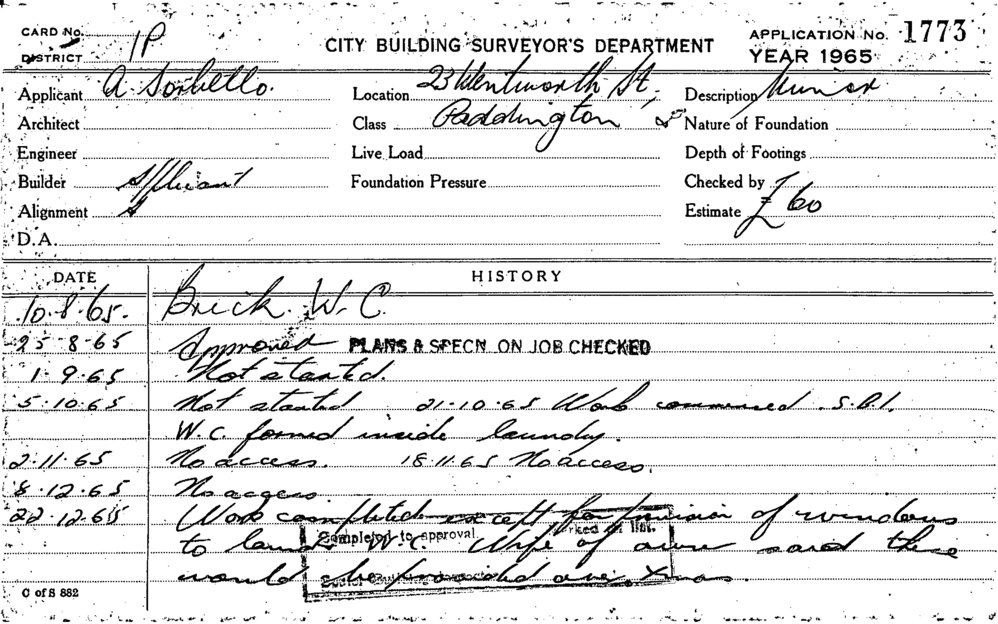 CARD No. 1P
DISTRICT
CITY BUILDING SURVEYOR'S DEPARTMENT
APPLICATION No. 1773
YEAR 1965
Applicant A. Sorbello.
Location 23 Wentworth St,
Description Minor
Architect
Class Paddington
Nature of Foundation
Engineer
Live Load
Depth of Footings
Builder Applicant
Foundation Pressure
Checked by
Alignment
Estimate £60
D.A.
DATE HISTORY
10.8.65. Brick W.C.
25-8-65 Approved PLANS & SPECN. ON JOB CHECKED
1-9-65 Not started.
5-10-65 Not started 21-10-65 Work commenced. S.B.I.
W.C. formed inside laundry.
2-11-65 No access. 18.11.65 No access.
8-12-65 No access.
22-12-65 Work completed except for provision of windows
to laundry W.C. Wife of owner said these
would be provided over Xmas.
Completed to approval. Marked off list.
C of S 882